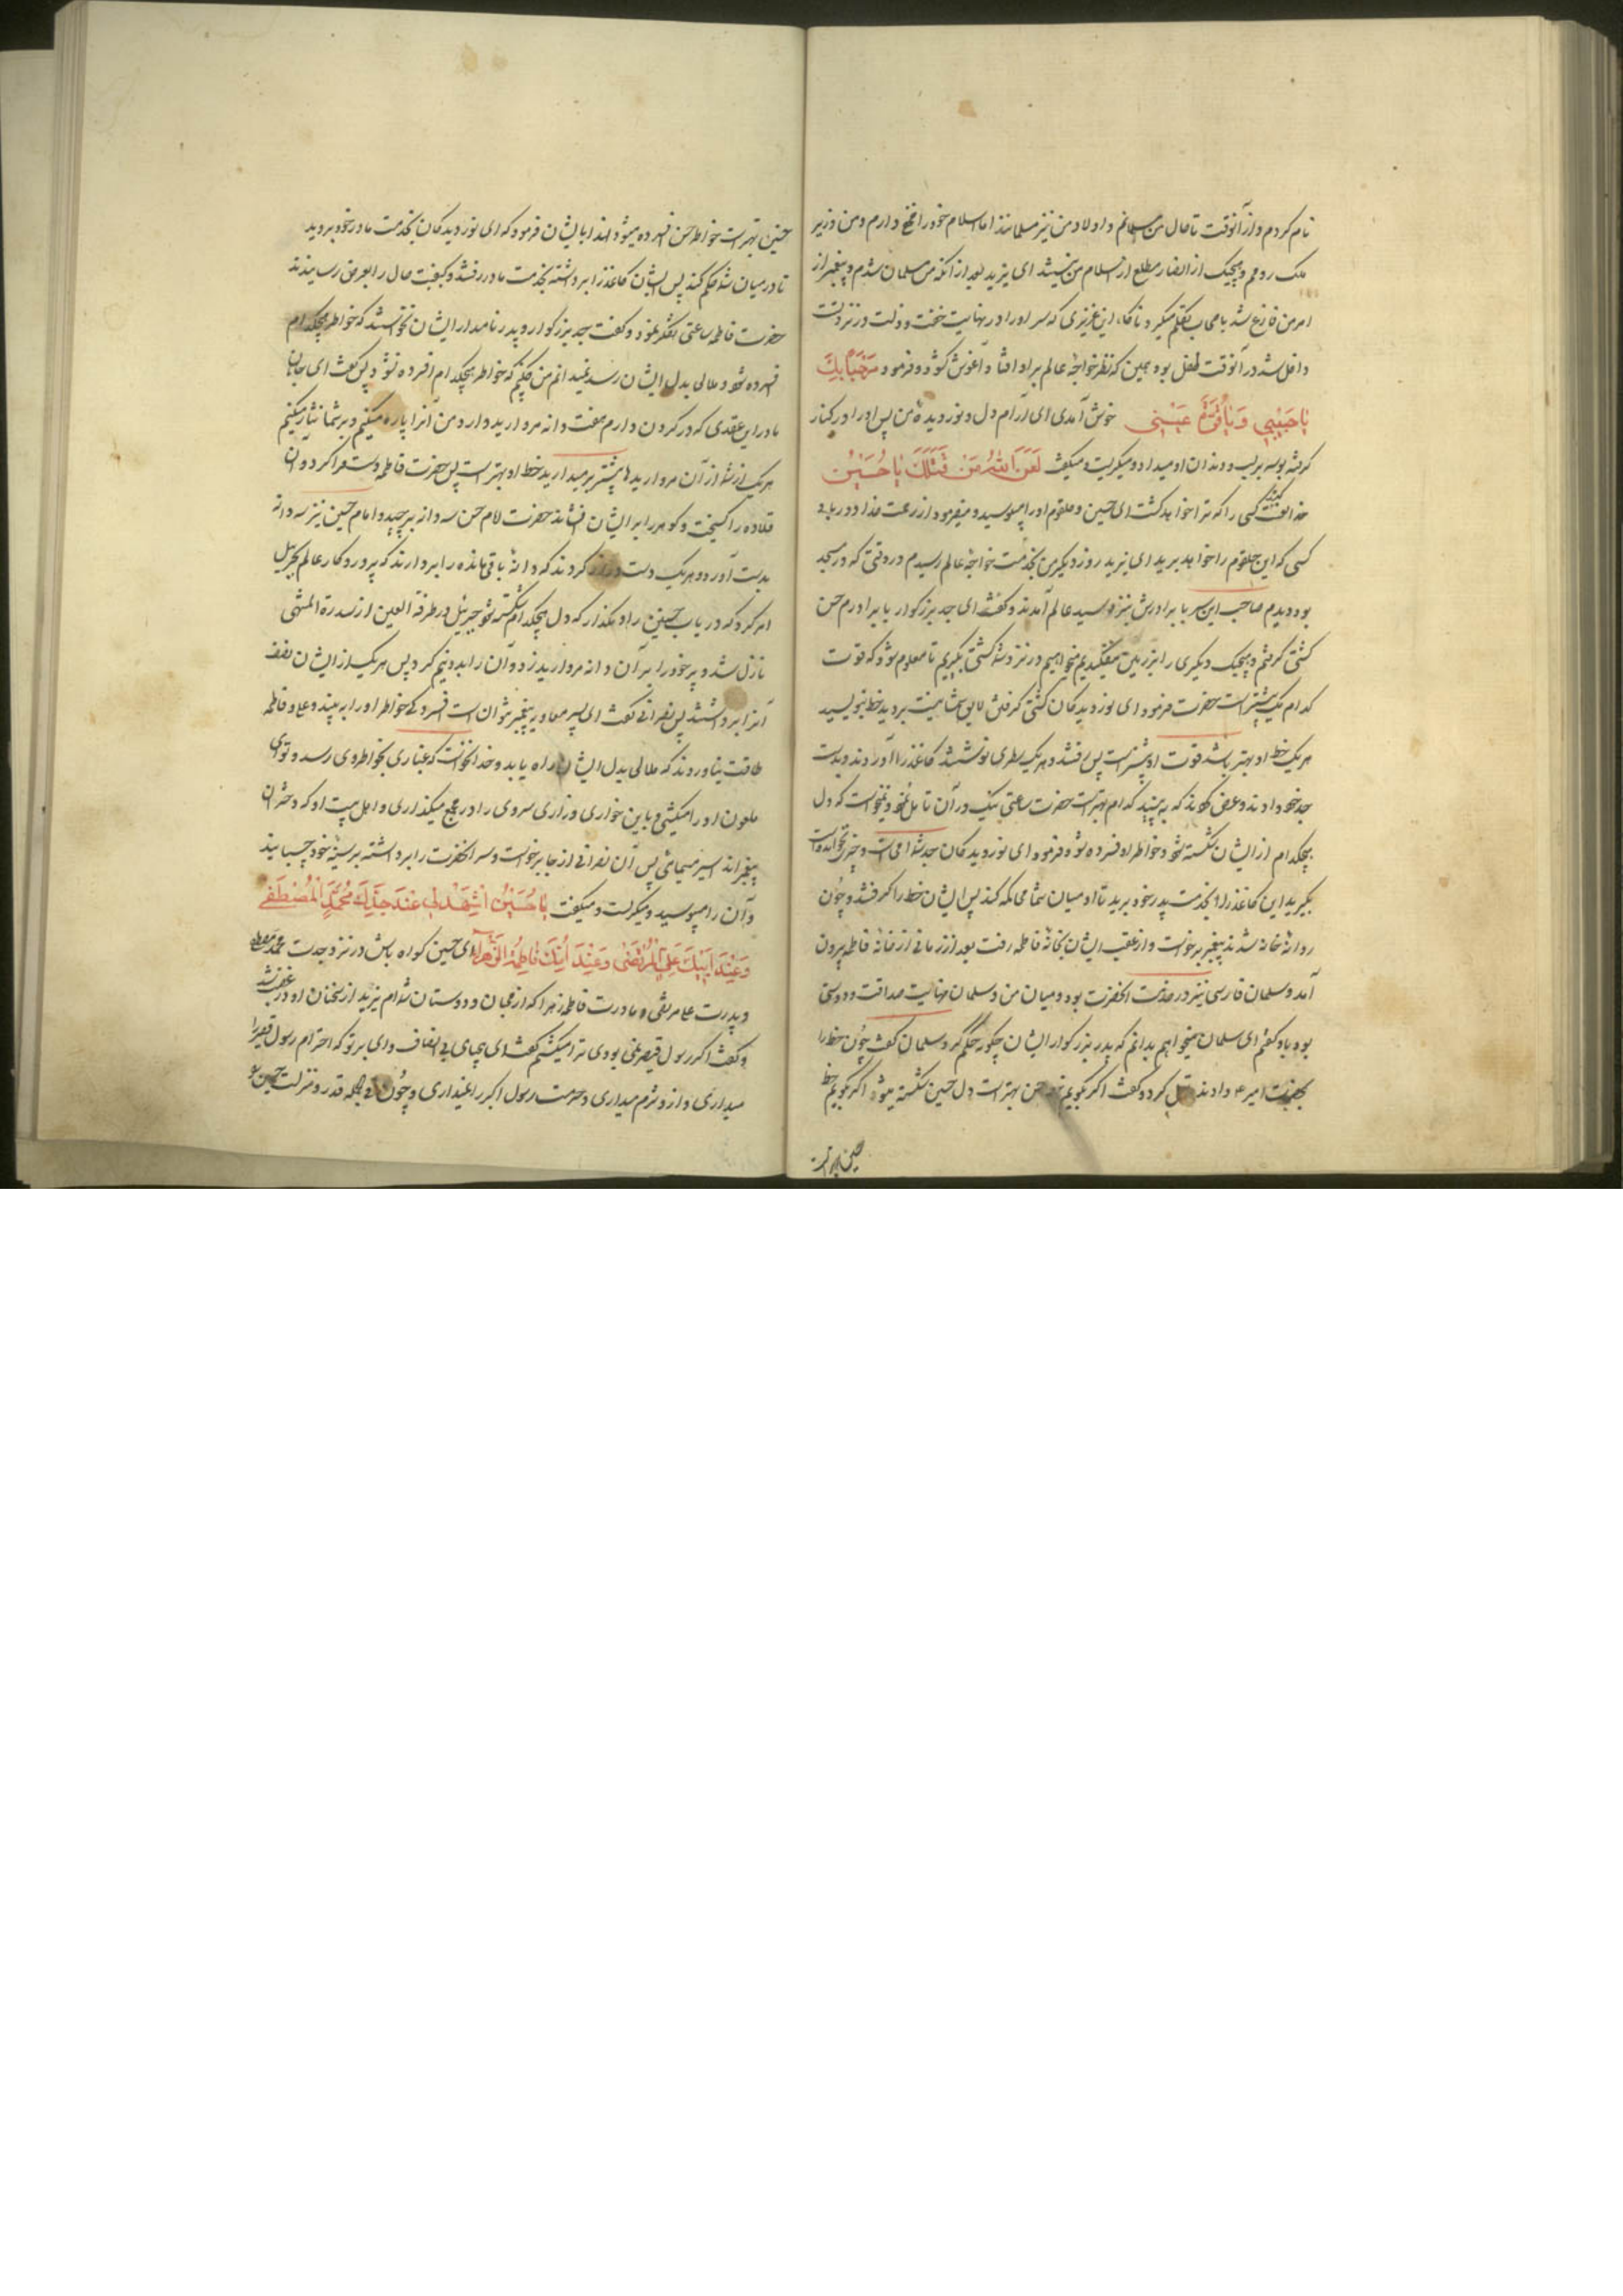 نام کردم و از آنوقت تا حال من مسلمانم و اولاد من نیز مسلمانند اما اسلام خود را مخفی دارم و من وزیر
ملک رومم و هیچیک از انصار مطلع از اسلام من نیستند ای یزید بعد از آنکه من مسلمان شدم و پیغمبر از
امر من فارغ شد با صحاب تکلم میکرد ناکاه این عزیزی که سر او را در نهایت خفت و ذلت در نزد تست
داخل شد در آنوقت طفل بود همین که نظر خواجه عالم بر او افتاد آغوش کشود و فرمود مَرْحَبًا بِكَ
يٰا حَبيٖبي وَ يٰا قُرَّةَ عَيْنيٖ خوش آمدی ای آرام دل و نور دیده من پس او را در کنار
کرفته بوسه بر لب و دندان او میداد و میکریست و میکفت لَعَنَ اللهُ مَنْ قَتَلَكَ يٰا حُسَيْنُ
خدا لعنت کند کسی را که ترا خواهد کشت ای حسین و حلقوم او را میبوسید و میفرمود از رحمت خدا دور باد
کسی که این حلقوم را خواهد برید ای یزید روز دیکر من بخدمت خواجه عالم رسیدم در وقتی که در مسجد
بود دیدم صاحب این سر با برادرش بنزد سید عالم آمدند و کفتند ای جد بزرکوار با برادرم حسن
کشتی کرفتم و هیچیک دیکری را بزمین نیفکندیم میخواهیم در نزد شما کشتی بکیریم تا معلوم شود که قوت
کدام یک بیشتر است حضرت فرمود ای نور دیدکان کشتی کرفتن لایق شما نیست بروید خط بنویسید
هر یک خط او بهتر باشد قوت او بیشتر است پس رفتند و هر یک سطری نوشتند کاغذ را آوردند و بدست
جد خود دادند و عرض کردند که ببینید کدام بهتر است حضرت ساعتی نیک در آن تامل نمود نخواست که دل
هیچکدام از ایشان شکسته شود و خاطر او افسرده شود فرمود ای نور دیدکان جد شما امی است و چیزی نخوانده است
بکیرید این کاغذ را بخدمت پدر خود برید تا او میان شما محاکمه کند پس ایشان خط را کرفتند و چون
روانه خانه شدند پیغمبر برخواست و از عقب ایشان بخانه فاطمه رفت بعد از زمانی از خانه فاطمه بیرون
آمد و سلمان فارسی نیز در خدمت آنحضرت بود و میان من و سلمان نهایت صداقت و دوستی
بود باو کفتم ای سلمان میخواهم بدانم که پدر بزرکوار ایشان چکونه حکم کرد سلمان کفت چون خط را
بخدمت امیر ع دادند تامل کرد و کفت اکر بکویم خط حسن بهتر است دل حسین شکسته میشود اکر بکویم خط
حسین بهتر است
حسین بهتر است خاطر حسن افسرده میشود لهذا بایشان فرمود که ای نور دیدکان بخدمت مادر خود بروید
تا در میان شما حکم کند پس ایشان کاغذ را برداشته بخدمت مادر رفتند و کیفیت حال را بعرض رسانیدند
حضرت فاطمه ساعتی تفکر نمود و کفت جد بزرکوار و پدر نامدار ایشان نخواستند که خاطر هیچکدام
افسرده شود و ملالی بدل ایشان رسد نمیدانم من چکنم که خاطر هیچکدام افسرده نشود پس کفت ای جانان
مادر این عقدی که در کردن دارم هفت دانه مروارید دارد من آنرا پاره میکنم و بر شما نثار میکنم
هر یک از شما از آن مرواریدها بیشتر بر میدارید خط او بهتر است پس حضرت فاطمه دست فرا کرد و آن
قلاده را کسیخت و کوهر را بر ایشان افشاند حضرت امام حسن سه دانه برچید و امام حسین نیز سه دانه
بدست آورد و هر یک دست دراز کردند که دانه باقی مانده را بردارند که پروردکار عالم بجبرئیل
امر کرد که دریاب حسنین را و مکذار که دل هیچکدام شکسته شود جبرئیل در طرفة العین از سدرة المنتهی
نازل شد و پر خود را بر آن دانه مروارید زد و آن را بدو نیم کرد پس هر یک از ایشان نصف
آنرا برداشتند پس نصرانی کفت ای پسر معاویه پیغمبر نتوانست افسردکی خاطر او را ببیند و علی و فاطمه
طاقت نیاوردند که ملالی بدل ایشان راه یابد و خدا نخواست که غباری بخاطر وی رسد و تو ای
ملعون او را میکشی و باین خواری و زاری سر وی را در مجمع میکذاری و اهل بیت او که دختران
پیغمبرند اسیر مینمائی پس آن نصرانی از جا برخواست و سر آنحضرت را برداشته بر سینه خود چسبانید
و آن را میبوسید و میکریست و میکفت يٰا حُسَيْنُ اشْهَدْ لي عِنْدَ جَدِّكَ مُحَمَّدٍ الْمُصْطَفىٰ
وَ عِنْدَ اَبيٖكَ عَلِيٍّ الْمُرْتَضىٰ وَ عِنْدَ اُمِّكَ فٰاطِمَةَ الزَّهْرٰاء ای حسین کواه باش در نزد جدت محمد مصطفی
و پدرت علی مرتضی و مادرت فاطمه زهرا که از محبان و دوستان شما ام یزید از سخنان او در غضب شد
و کفت اکر رسول قیصر نمی بودی ترا میکشتم کفت ای بیحیای بی انصاف وای بر تو که احترام رسول قیصر را
میداری و از او شرم میداری و حرمت رسول اکبر را نمیداری و چون فی الجمله قدر و منزلت حسین بر